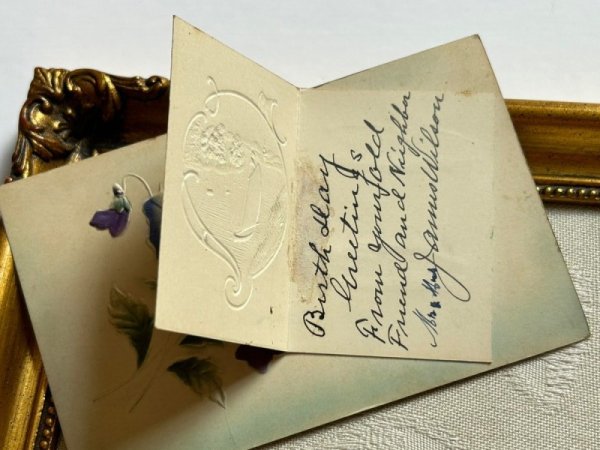 Birth Day
Greetings
From your old
Friend and Neighbor
Mr & Mrs James Wilson